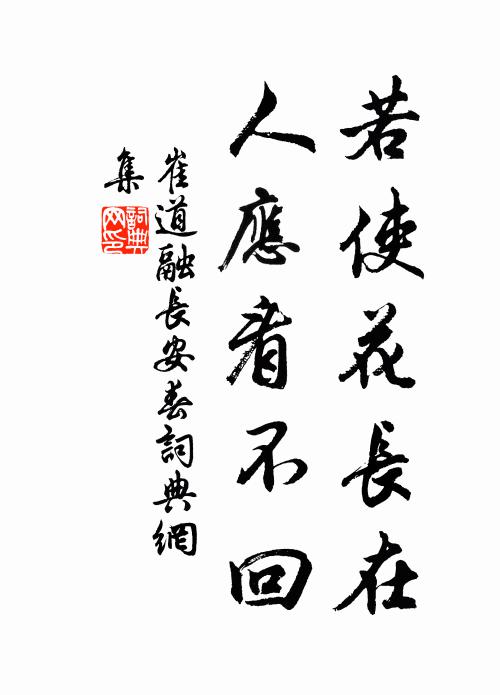 若使花長在
人應看不回
崔道融長安春詞典網
集
詞典
网印